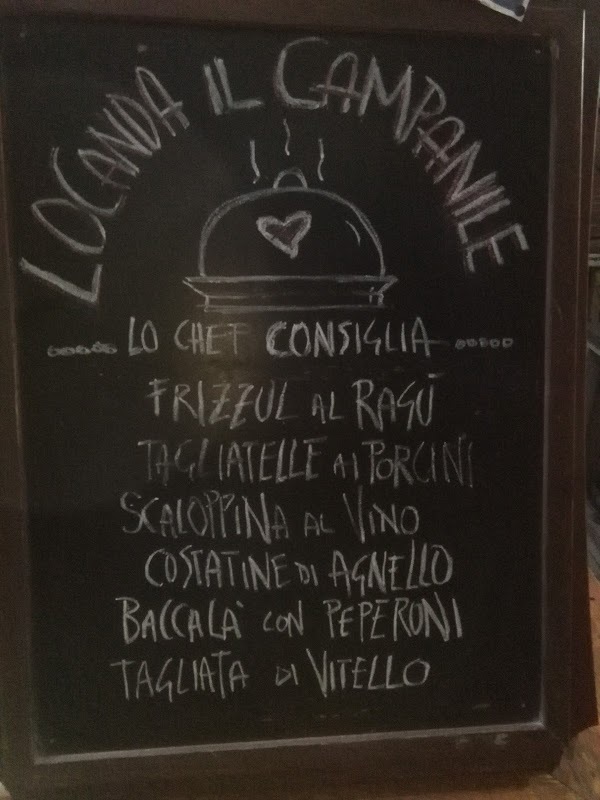 LOCANDA IL CAMPANILE
LO CHEF CONSIGLIA
FRIZZUL AL RAGÚ
TAGLIATELLE AI PORCINI
SCALOPPINA AL VINO
COSTATINE DI AGNELLO
BACCALA' CON PEPERONI
TAGLIATA DI VITELLO